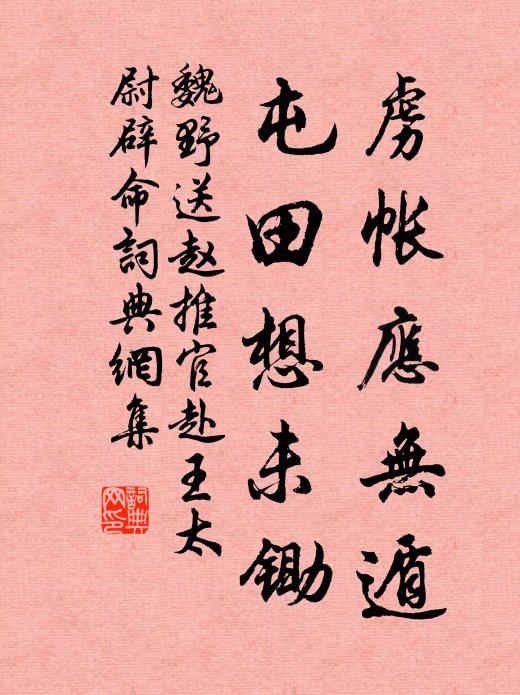 虜帳應無遁
屯田想未鋤
魏野送赵推官赴王太
尉辟命詞典網集
詞典
网印